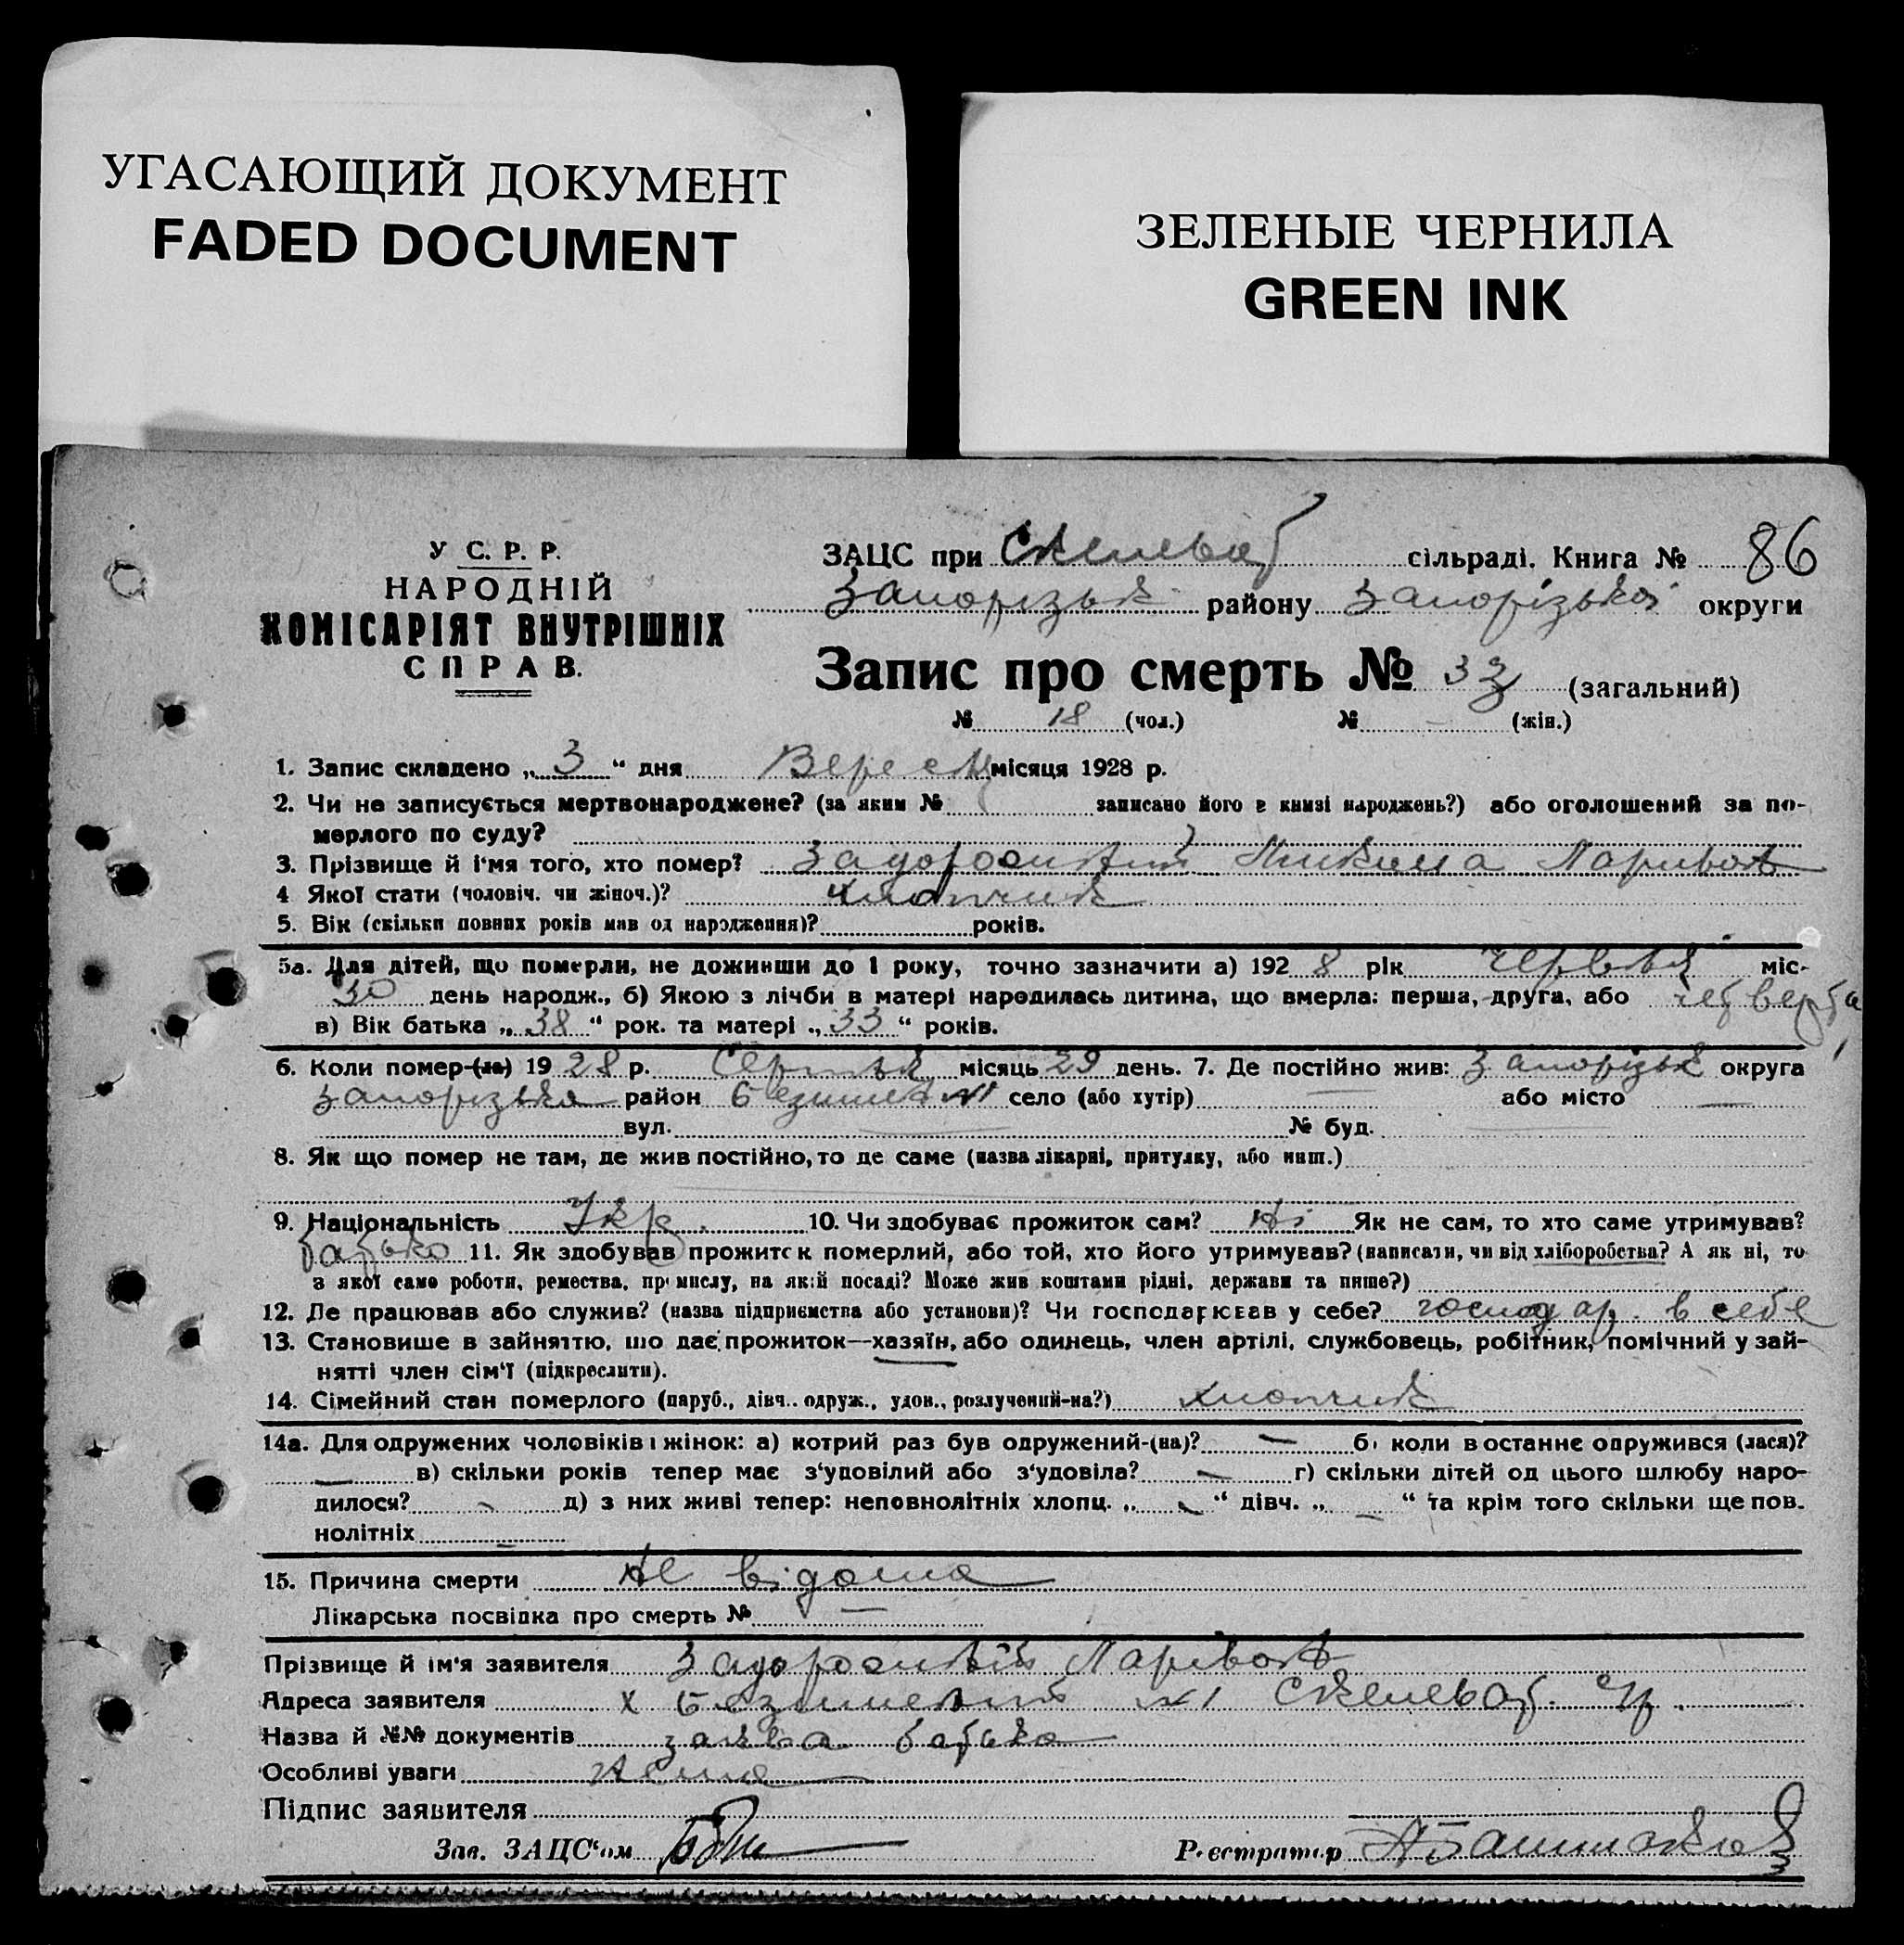 УГАСАЮЩИЙ ДОКУМЕНТ
FADED DOCUMENT
ЗЕЛЕНЫЕ ЧЕРНИЛА
GREEN INK
У С. Р. Р.
НАРОДНІЙ
КОМІСАРІЯТ ВНУТРІШНІХ
СПРАВ.
ЗАЦС при Скелеват сільраді. Книга № 86
Запорізьк району Запорізької округи
Запис про смерть № 33 (загальний)
№ 18 (чол.) № – (жін.)
1. Запис складено „ 3 “ дня Вересня місяця 1928 р.
2. Чи не записується мертвонароджене? (за яким № записано його в книзі народжень?) або оголошений за по-
мерлого по суду?
3. Прізвище й і‘мя того, хто помер? Задорожній Микита Ларивон
4 Якої стати (чоловіч. чи жіноч.)? хлопчик
5. Вік (скільки повних років мав од народження)? років.
5а. Для дітей, що померли, не доживши до 1 року, точно зазначити а) 192 8 рік червня міс-
30 день народж., б) Якою з лічби в матері народилась дитина, що вмерла: перша, друга, або четверта
в) Вік батька „ 38 “ рок. та матері „ 33 “ років.
6. Коли помер-(ла) 19 28 р. Серпня місяць 29 день. 7. Де постійно жив: Запорізьк округа
Запорізька район №1 село (або хутір) — або місто —
вул. № буд.
8. Як що помер не там, де жив постійно, то де саме (назва лікарні, притулку, або инш.)
9. Національність Укр. 10. Чи здобуває прожиток сам? Ні Як не сам, то хто саме утримував?
батько 11. Як здобував прожиток померлий, або той, хто його утримував? (написати, чи від хліборобства? А як ні, то
з якої саме роботи, ремества, промислу, на якій посаді? Може жив коштами рідні, держави та инше?)
12. Де працював або служив? (назва підприємства або установи)? Чи господарював у себе? господар. в себе
13. Становише в зайняттю, шо дає прожиток—хазяїн, або одинець, член артілі, службовець, робітник, помічний у зай-
нятті член сім‘ї (підкреслити).
14. Сімейний стан померлого (паруб., дівч.. одруж., удов., розлучений-на?) хлопчик
14а. Для одружених чоловіків і жінок: а) котрий раз був одружений-(на)? — б) коли в останнє одружився (лася)?
— в) скільки років тепер має з‘удовілий або з‘удовіла? — г) скільки дітей од цього шлюбу наро-
дилося? - д) з них живі тепер: неповнолітніх хлопц. „ - “ дівч. „ – “ та крім того скільки ще пов-
нолітніх -
15. Причина смерти Не відома
Лікарська посвідка про смерть № —
Прізвище й ім‘я заявителя Задорожній Ларівон
Адреса заявителя х №1 Скелеват. с/р.
Назва й №№ документів заява батька
Особливі уваги нема
Підпис заявителя
Зав. ЗАЦС‘ом
Реєстратор